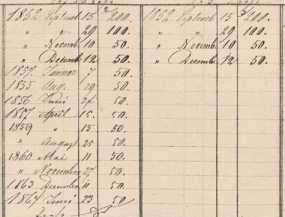 1852 Septemb 15 100. 1852 Septemb 15 100.
" " 29 100. " " 29 100.
" Novemb 10 50. " Novemb 10 50.
" Decemb 12 50. " Decemb 12 50.
7 50.
1855 Aug. 29 50.
1856 Juni 50.
1857 April 15. 50.
1859 " 15. 50.
" August 25 50.
1860 Mai 11 50.
" Novemb 27 50.
1863 11 50.
1864 23 50